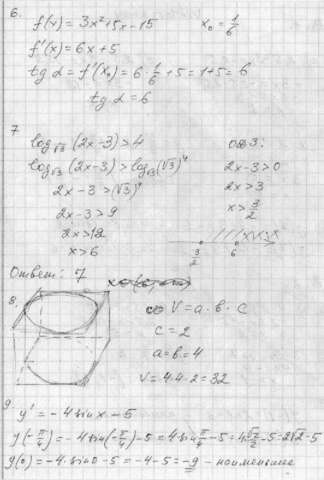 6. f(x) = 3x²+5x-15 x₀ = 1/6
f'(x) = 6x + 5
tg α = f'(x₀) = 6 · 1/6 + 5 = 1+5 = 6
tg α = 6
7
log_√3 (2x-3) > 4 ОДЗ:
log_√3 (2x-3) > log_√3 (√3)⁴ 2x-3>0
2x-3 > (√3)⁴ 2x>3
2x-3 > 9 x > 3/2
2x > 12
x > 6 3/2 6
Ответ: 7
8. V = a · b · c
c = 2
a = b = 4
V = 4·4·2 = 32
9. y' = -4 sin x - 5
y(-π/4) = -4 sin(-π/4) - 5 = 4 sin π/4 - 5 = 4 √2/2 - 5 = 2√2 - 5
y(0) = -4 · sin 0 - 5 = -4 - 5 = -9 - наименьшее